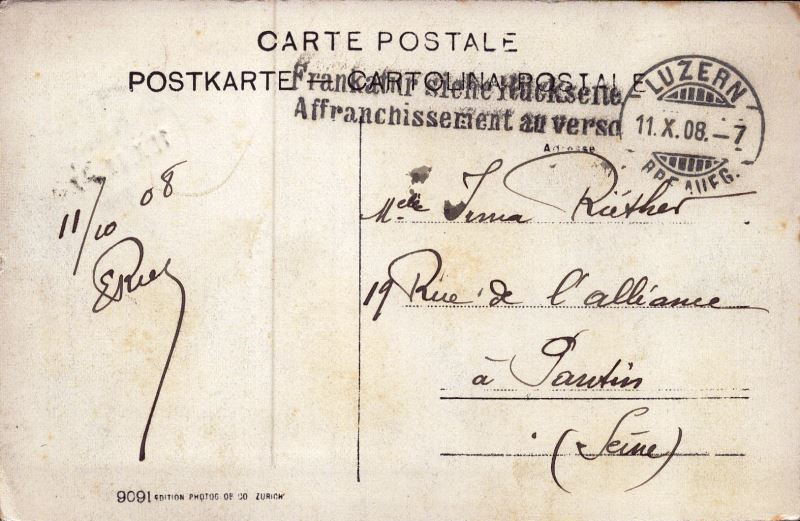 CARTE POSTALE
POSTKARTE — CARTOLINA POSTALE
Frankatur siehe Rückseite
Affranchissement au verso
LUZERN
11.X.08.–7
BRFAUFG.
Adresse
11/10 08
Melle Irma Rüther
19 Rue de l'alliance
à Pantin
(Seine)
9091 EDITION PHOTOGLOB CO ZURICH